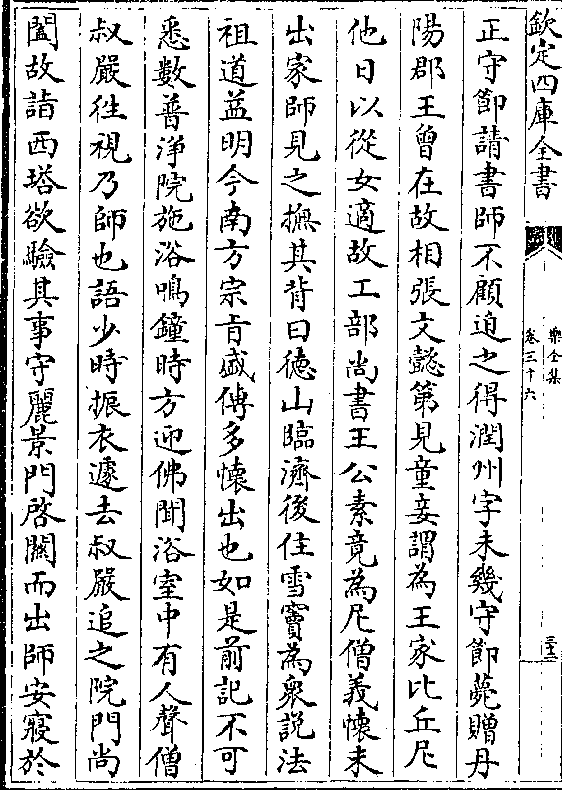 欽定四庫全書
樂全集
卷三十六
正守節請書師不顧迫之得潤州字未幾守節薨贈丹
陽郡王曾在故相張文懿第見童妾謂為王家比丘尼
他日以從女適故工部尚書王公素竟為尼僧義懐未
出家師見之撫其背曰德山臨濟後住雪竇為衆說法
祖道益明今南方宗旨盛傳多懐出也如是前記不可
悉數普浄院施浴鳴鐘時方迎佛聞浴室中有人聲僧
叔嚴徃視乃師也語少時振衣遽去叔嚴追之院門尚
闔故詣西塔欲驗其事守麗景門啓關而出師安寢於